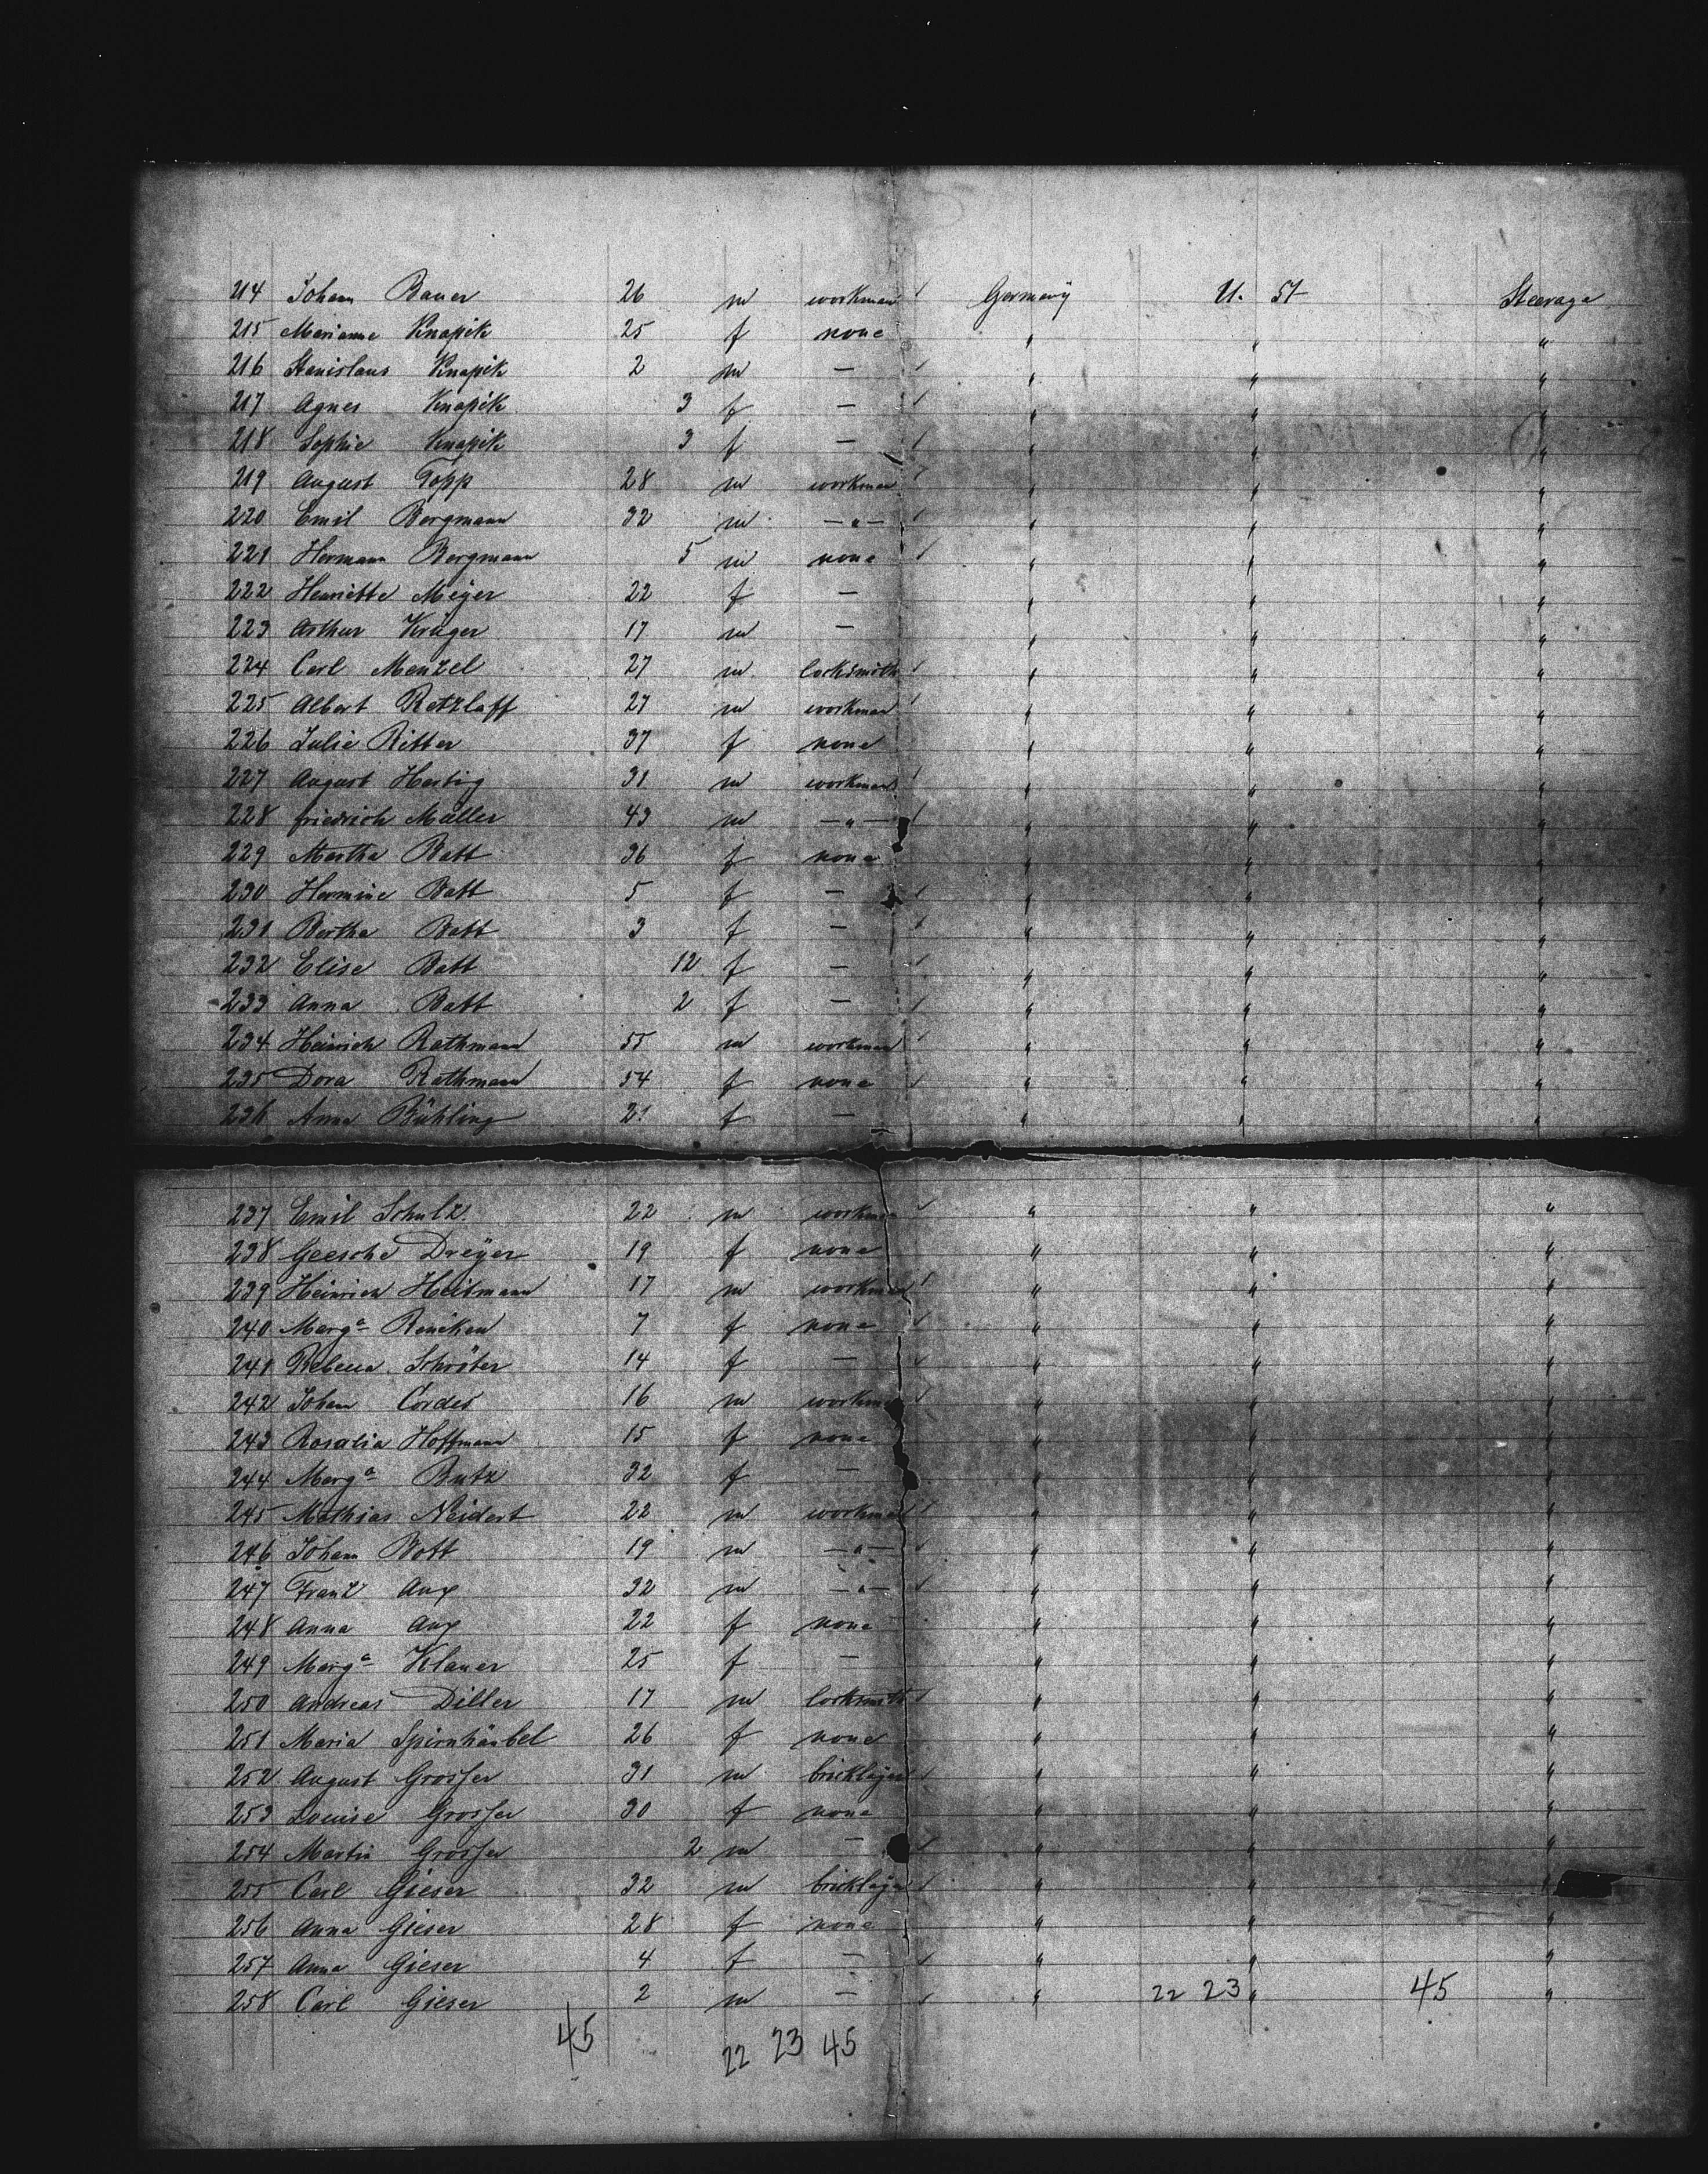 214 Johann Bauer 26 m workman Germany U. St Steerage
215 Marianne Knapik 25 f none " " "
216 Stanislaus Knapik 2 m — " " "
217 Agnes Knapik 3 f — " " "
218 Sophie Knapik 3 f — " " "
219 August Topp 28 m workman " " "
220 Emil Bergmann 32 m —"— " " "
221 Hermann Bergmann 5 m none " " "
222 Henriette Meyer 22 f — " " "
223 Arthur Krüger 17 m — " " "
224 Carl Menzel 27 m locksmith " " "
225 Albert Retzlaff 27 m workman " " "
226 Julie Ritter 37 f none " " "
227 August Hertig 31 m workman " " "
228 Friedrich Müller 43 m —"— " " "
229 Martha Batt 36 f none " " "
230 Hermine Batt 5 f — " " "
231 Bertha Batt 3 f — " " "
232 Elise Batt 12 f — " " "
233 Anna Batt 2 f — " " "
234 Heinrich Rathmann 55 m workman " " "
235 Dora Rathmann 54 f none " " "
236 Anna Bühling 21 f — " " "
237 Emil Schulz 22 m workman " " "
238 Geesche Dreyer 19 f none " " "
239 Heinrich Heitmann 17 m workman " " "
240 Marga Reniken 7 f none " " "
241 Rebecca Schröter 14 f — " " "
242 Johann Cordes 16 m workman " " "
243 Rosalia Hoffmann 15 f none " " "
244 Marga Butz 32 f — " " "
245 Mathias Neidert 22 m workman " " "
246 Johann Bott 19 m —"— " " "
247 Franz Aug 32 m —"— " " "
248 Anna Aug 22 f none " " "
249 Marga Klauer 25 f — " " "
250 Andreas Diller 17 m locksmith " " "
251 Maria 26 f none " " "
252 August Grosser 31 m bricklayer " " "
253 Louise Grosser 30 f none " " "
254 Martin Grosser 2 m — " " "
255 Carl Gieser 32 m bricklayer " " "
256 Anna Gieser 28 f none " " "
257 Anna Gieser 4 f — " " "
258 Carl Gieser 2 m — " 22 23 " 45 "
45 22 23 45